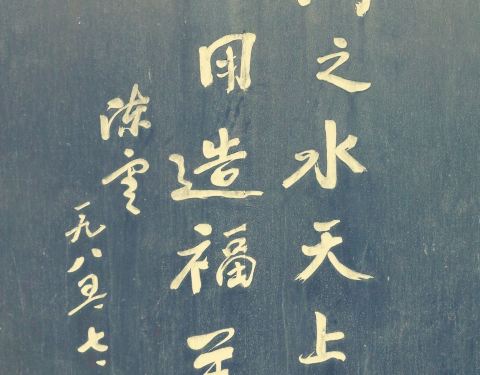 之水天上
用造福
陈雲
一九八五.七.